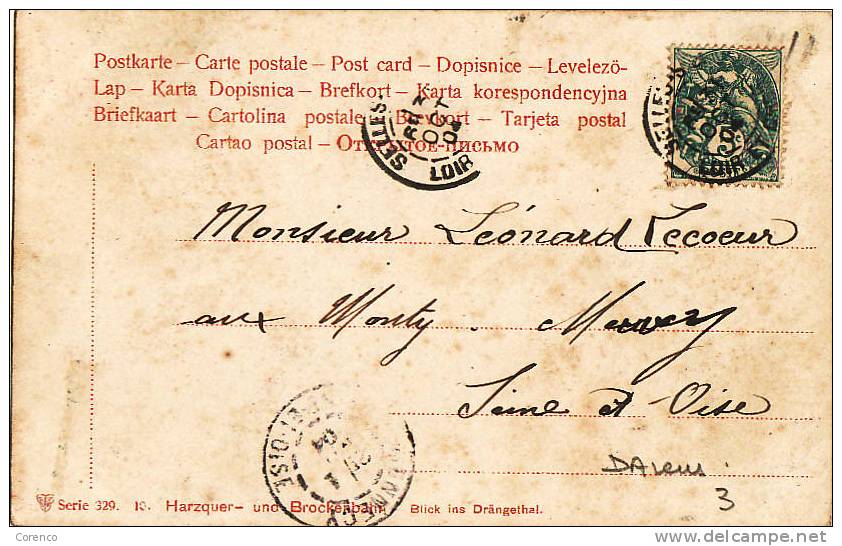 Postkarte – Carte postale – Post card – Dopisnice – Levelezö-
Lap – Karta Dopisnica – Brefkort – Karta korespondencyjna
Briefkaart – Cartolina postale – Brevkort – Tarjeta postal
Cartao postal – Открытое письмо
SELLES
OCT
04
LOIR
SELLES
LOIR
Monsieur Léonard Lecoeur
aux Monty.
Seine et Oise
3
ET-OISE
Serie 329. Harzquer- und Brockenbahn Blick ins Drängethal.
Corenco
delcampe.net